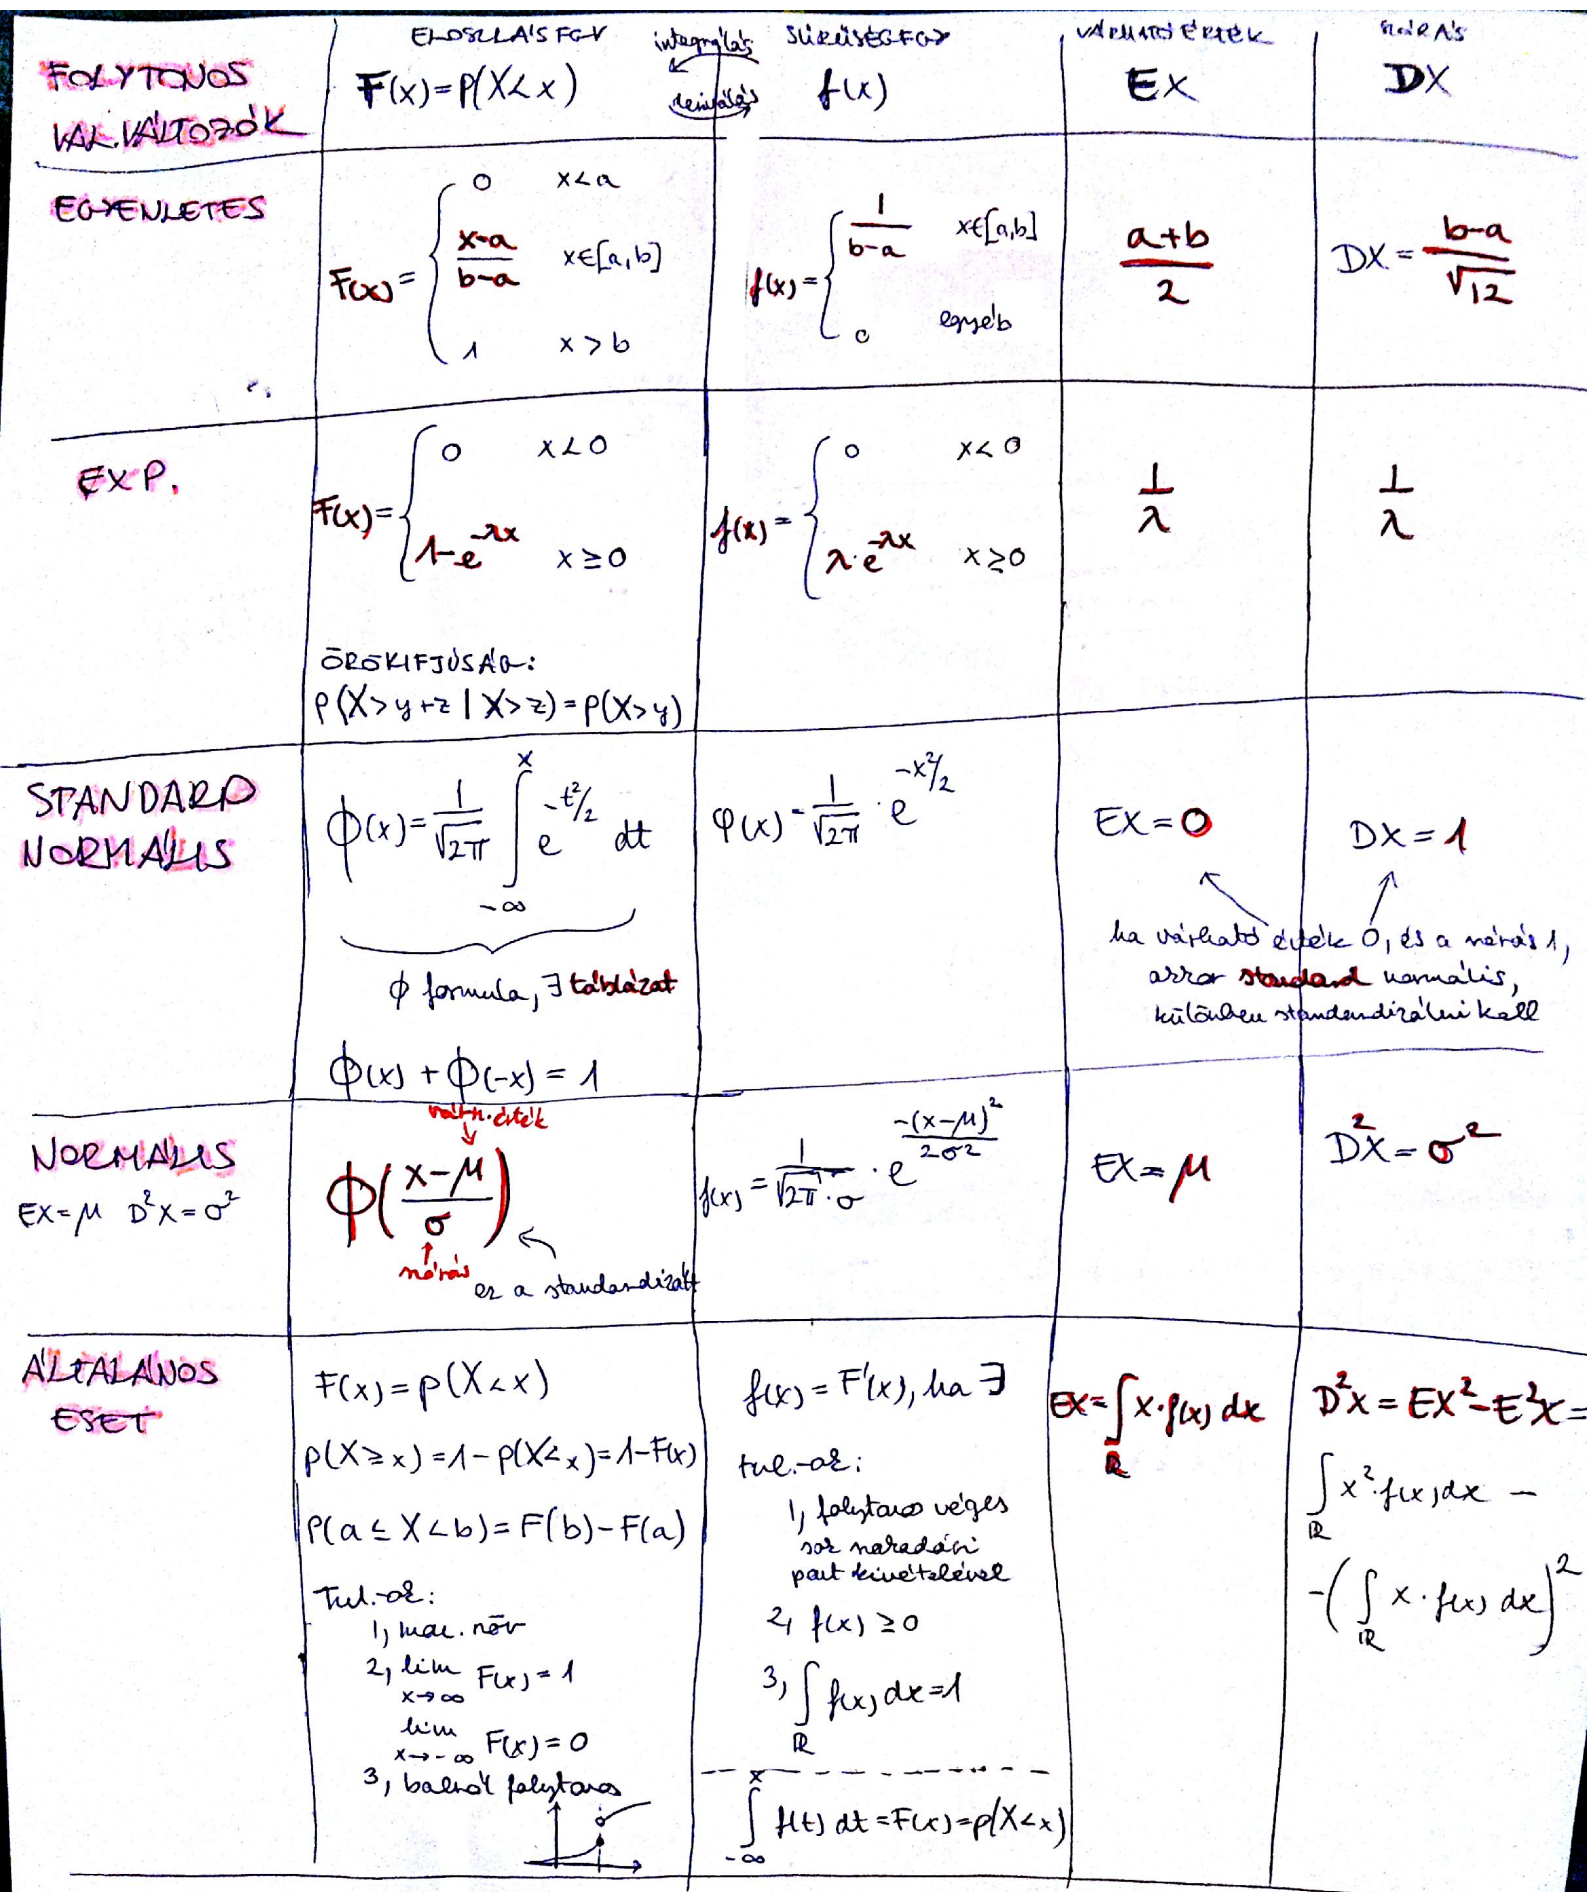 FOLYTONOS
VAL.VÁLTOZÓK
ELOSZLÁSFGV
F(x)=p(X<x)
integrálás
deriválás
SŰRŰSÉGFGV
f(x)
VÁRHATÓ ÉRTÉK
EX
SZÓRÁS
DX
EGYENLETES
F(x) = { 0 x<a
(x-a)/(b-a) x∈[a,b]
1 x>b
f(x) = { 1/(b-a) x∈[a,b]
0 egyéb
(a+b)/2
DX = (b-a)/√12
EXP.
F(x) = { 0 x<0
1-e^(-λx) x≥0
ÖRÖKIFJÚSÁG:
P(X>y+z | X>z) = P(X>y)
f(x) = { 0 x<0
λ·e^(-λx) x≥0
1/λ
1/λ
STANDARD
NORMÁLIS
ϕ(x) = 1/√2π ∫_{-∞}^{x} e^(-t²/2) dt
ϕ formula, ∃ táblázat
ϕ(x) + ϕ(-x) = 1
φ(x) = 1/√2π · e^(-x²/2)
EX = 0
DX = 1
ha várható érték 0, és a szórás 1,
akkor standard normális,
különben standardizálni kell
NORMÁLIS
EX=μ D²X=σ²
várh. érték
ϕ((x-μ)/σ)
szórás
ez a standardizált
f(x) = 1/(√2π·σ) · e^(-(x-μ)²/2σ²)
EX = μ
D²X = σ²
ÁLTALÁNOS
ESET
F(x) = p(X<x)
p(X≥x) = 1-p(X<x) = 1-F(x)
P(a≤X<b) = F(b)-F(a)
Tul.-ok:
1, mon. növ
2, lim x→∞ F(x) = 1
lim x→-∞ F(x) = 0
3, balról folytonos
f(x) = F'(x), ha ∃
tul.-ok:
1, folytonos véges
sok szakadási
pont kivételével
2, f(x) ≥ 0
3, ∫_ℝ f(x) dx = 1
∫_{-∞}^{x} f(t) dt = F(x) = p(X<x)
EX = ∫_ℝ x·f(x) dx
D²X = EX²-E²X =
∫_ℝ x²·f(x) dx -
-(∫_ℝ x·f(x) dx)²